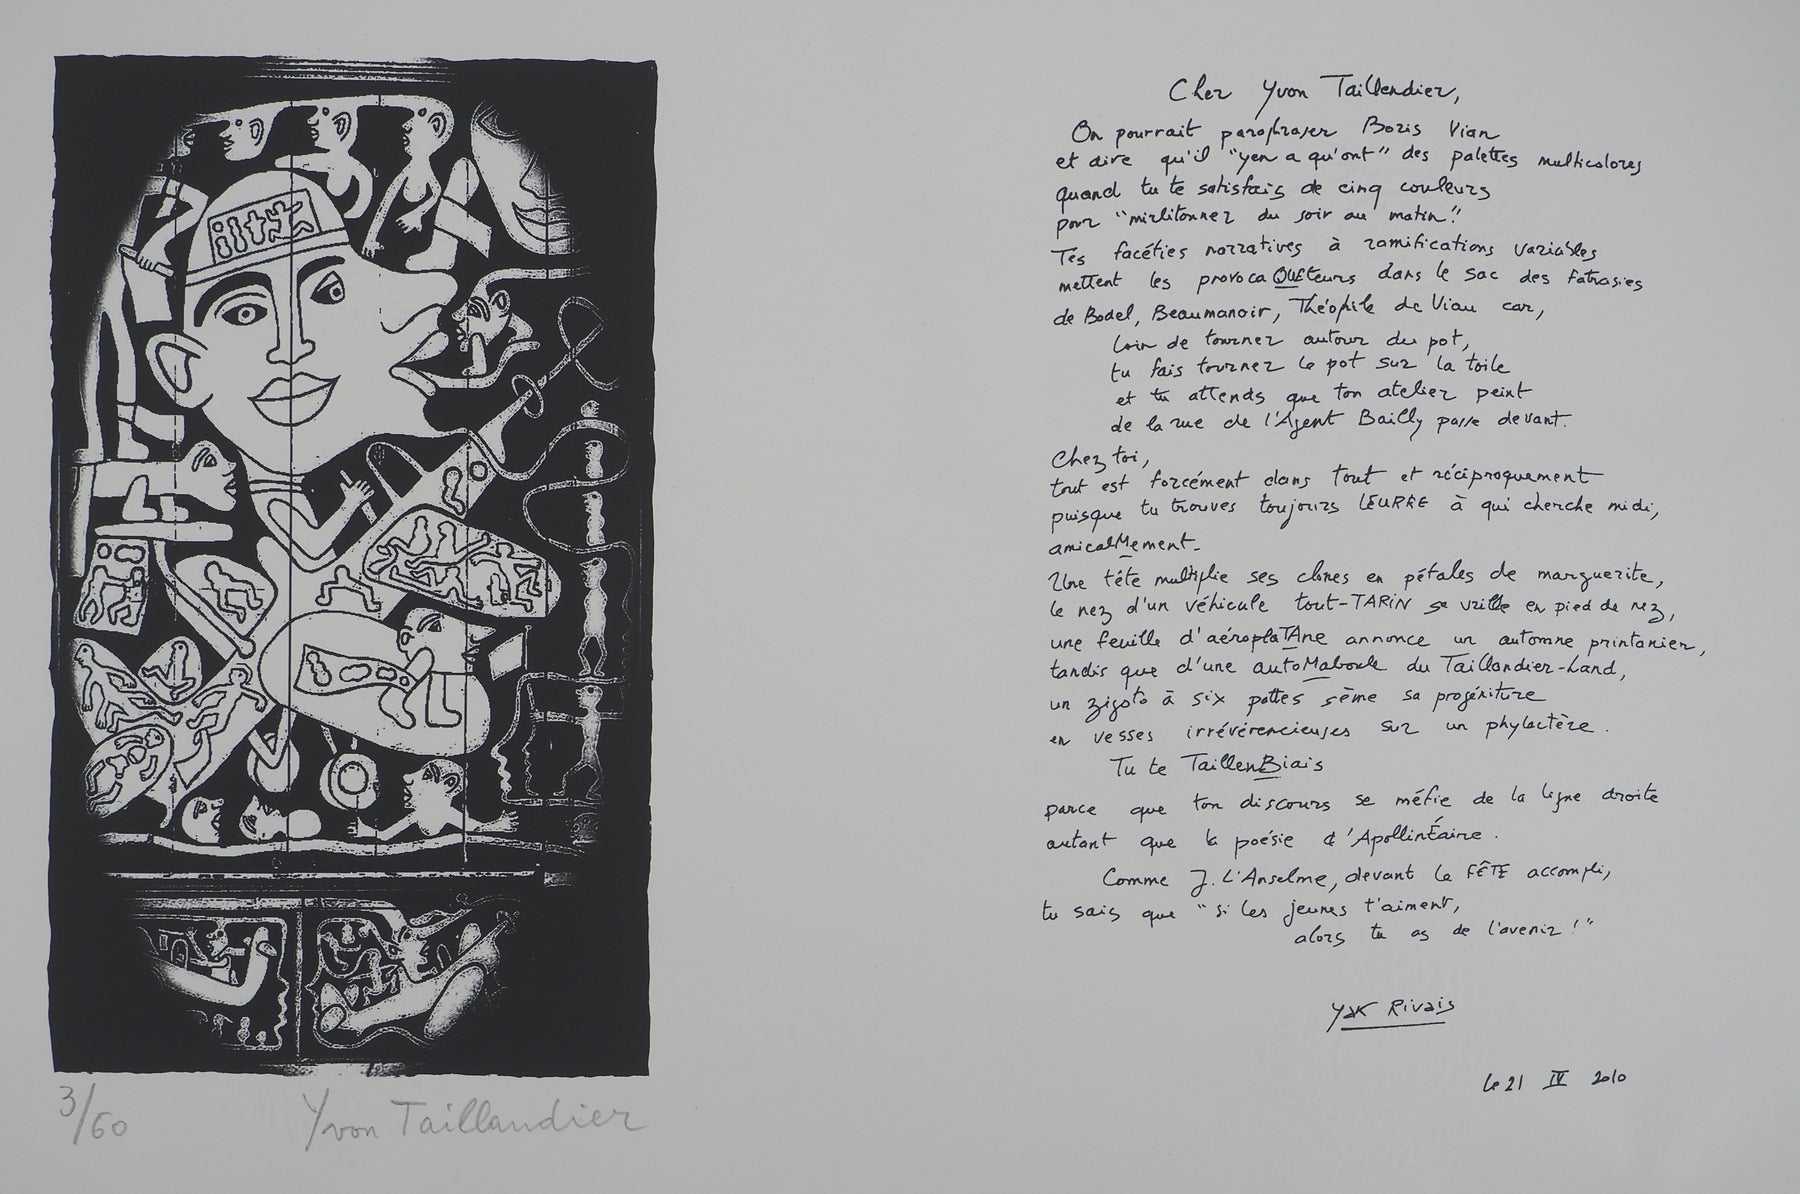 3/60
Yvon Taillandier
Cher Yvon Taillandier,
On pourrait paraphraser Boris Vian
et dire qu'il "yen a qu'ont" des palettes multicolores
quand tu te satisfais de cinq couleurs
pour "mirlitonner du soir au matin".
Tes facéties narratives à ramifications variables
mettent les provocaQUEteurs dans le sac des fatrasies
de Bodel, Beaumanoir, Théophile de Viau car,
loin de tourner autour du pot,
tu fais tourner le pot sur la toile
et tu attends que ton atelier peint
de la rue de l'Agent Bailly passe devant.
Chez toi,
tout est forcément dans tout et réciproquement
puisque tu trouves toujours LEURRE à qui cherche midi,
amicalMement.
Une tête multiplie ses clones en pétales de marguerite,
le nez d'un véhicule tout-TARIN se vrille en pied de nez,
une feuille d'aéroplaTAne annonce un automne printanier,
tandis que d'une autoMaboule du Taillandier-Land,
un zigoto à six pattes sème sa progéniture
en vesses irrévérencieuses sur un phylactère.
Tu te TaillenBiais
parce que ton discours se méfie de la ligne droite
autant que la poésie d'ApollinÉaire.
Comme J. L'Anselme, devant le FÊTE accompli,
tu sais que "si les jeunes t'aiment,
alors tu as de l'avenir!"
Yak Rivais
le 21 IV 2010